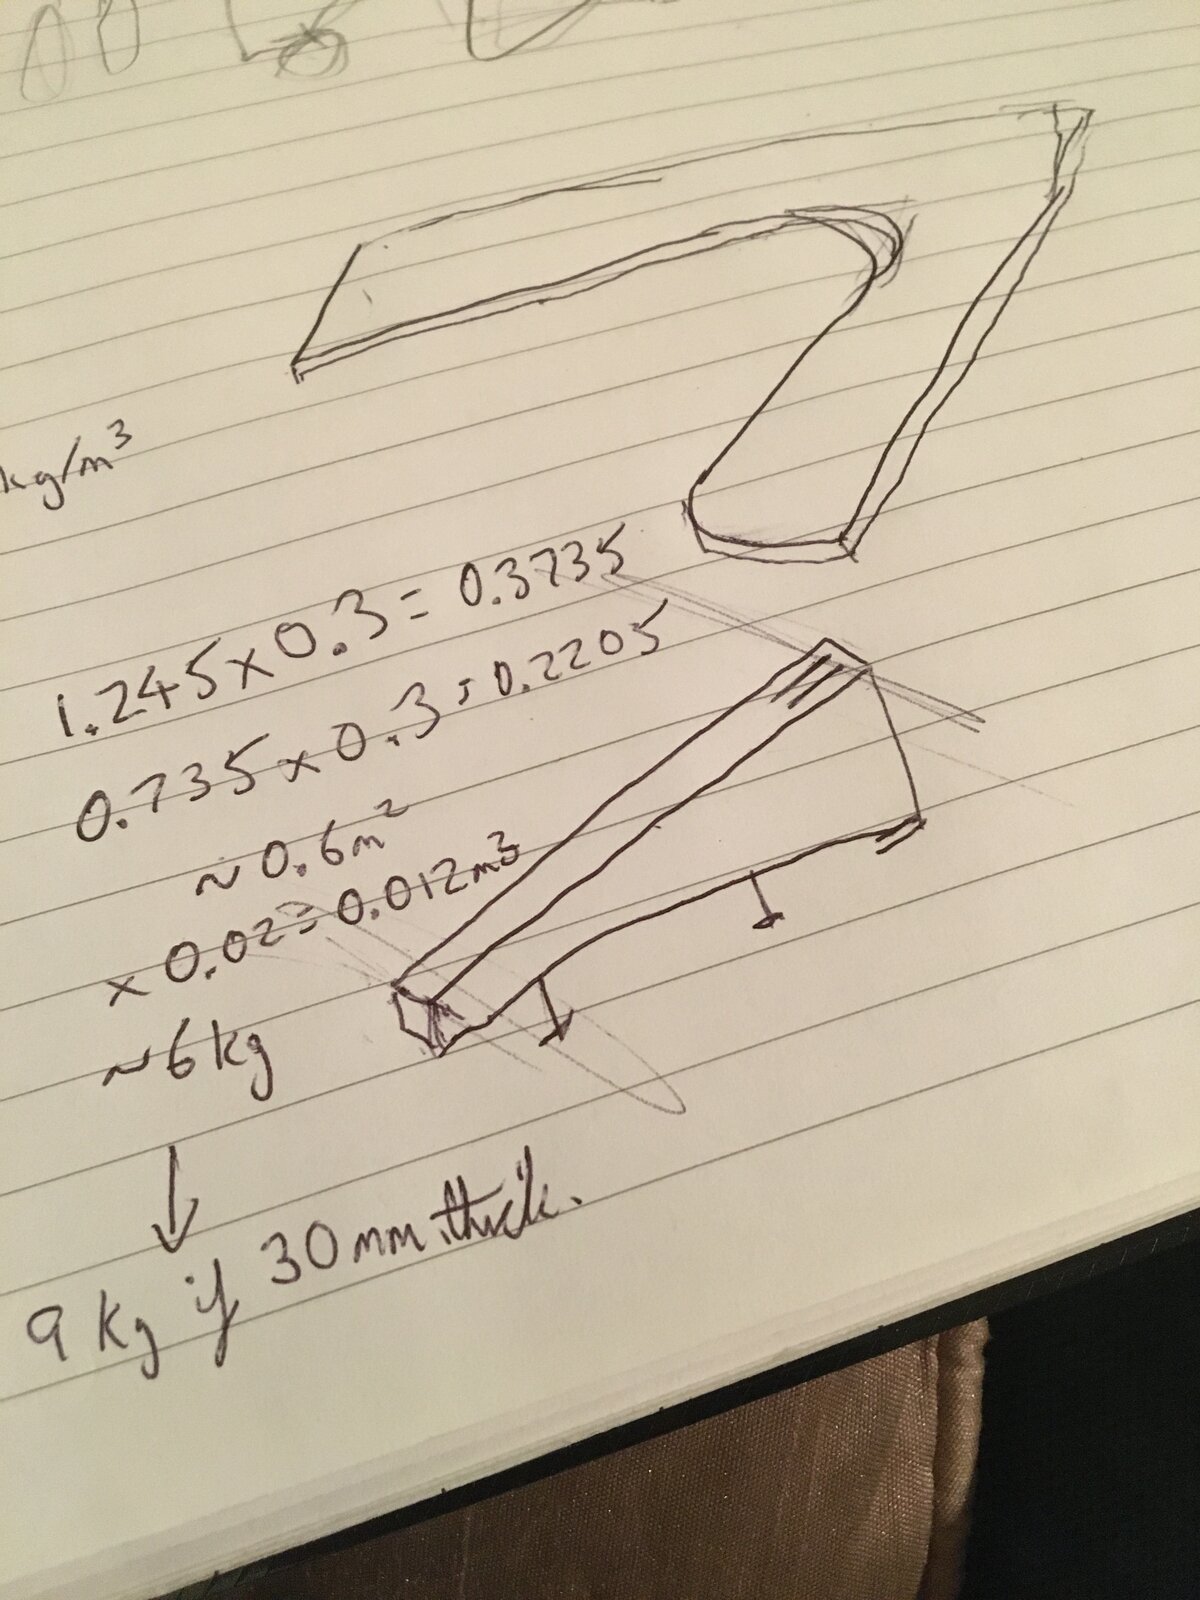 kg/m³
1.245 x 0.3 = 0.3735
0.735 x 0.3 = 0.2205
~ 0.6m²
x 0.02 = 0.012m³
~6kg
9kg if 30mm thick.